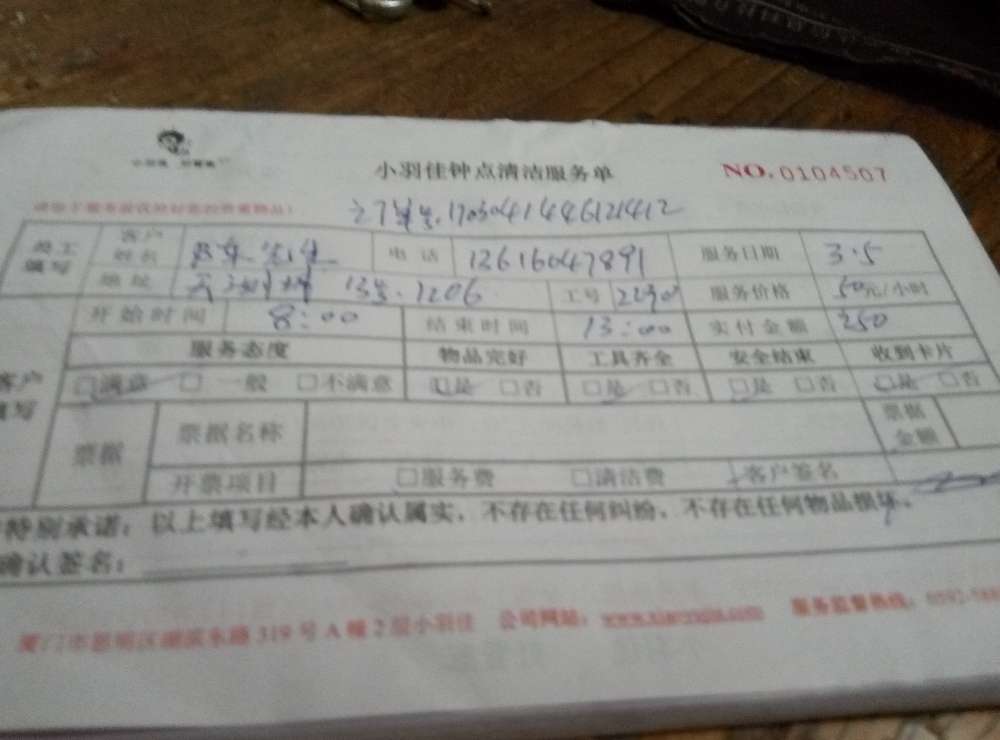 小羽佳钟点清洁服务单
NO. 0104507
1703041446121412
员工填写 客户姓名 先生 电话 12616047891 服务日期 3.5
地址 13 1206 工号 服务价格 50元/小时
开始时间 8:00 结束时间 13:00 实付金额 250
服务态度 物品完好 工具齐全 安全结束 收到卡片
客户填写 □满意 □一般 □不满意 □是 □否 □是 □否 □是 □否 □是 □否
票据 票据名称 票据金额
开票项目 □服务费 □清洁费 客户签名
特别承诺：以上填写经本人确认属实，不存在任何纠纷，不存在任何物品损坏。
确认签名：
厦门市思明区湖滨东路319号A幢2层小羽佳 公司网站： 服务监督热线：0592-